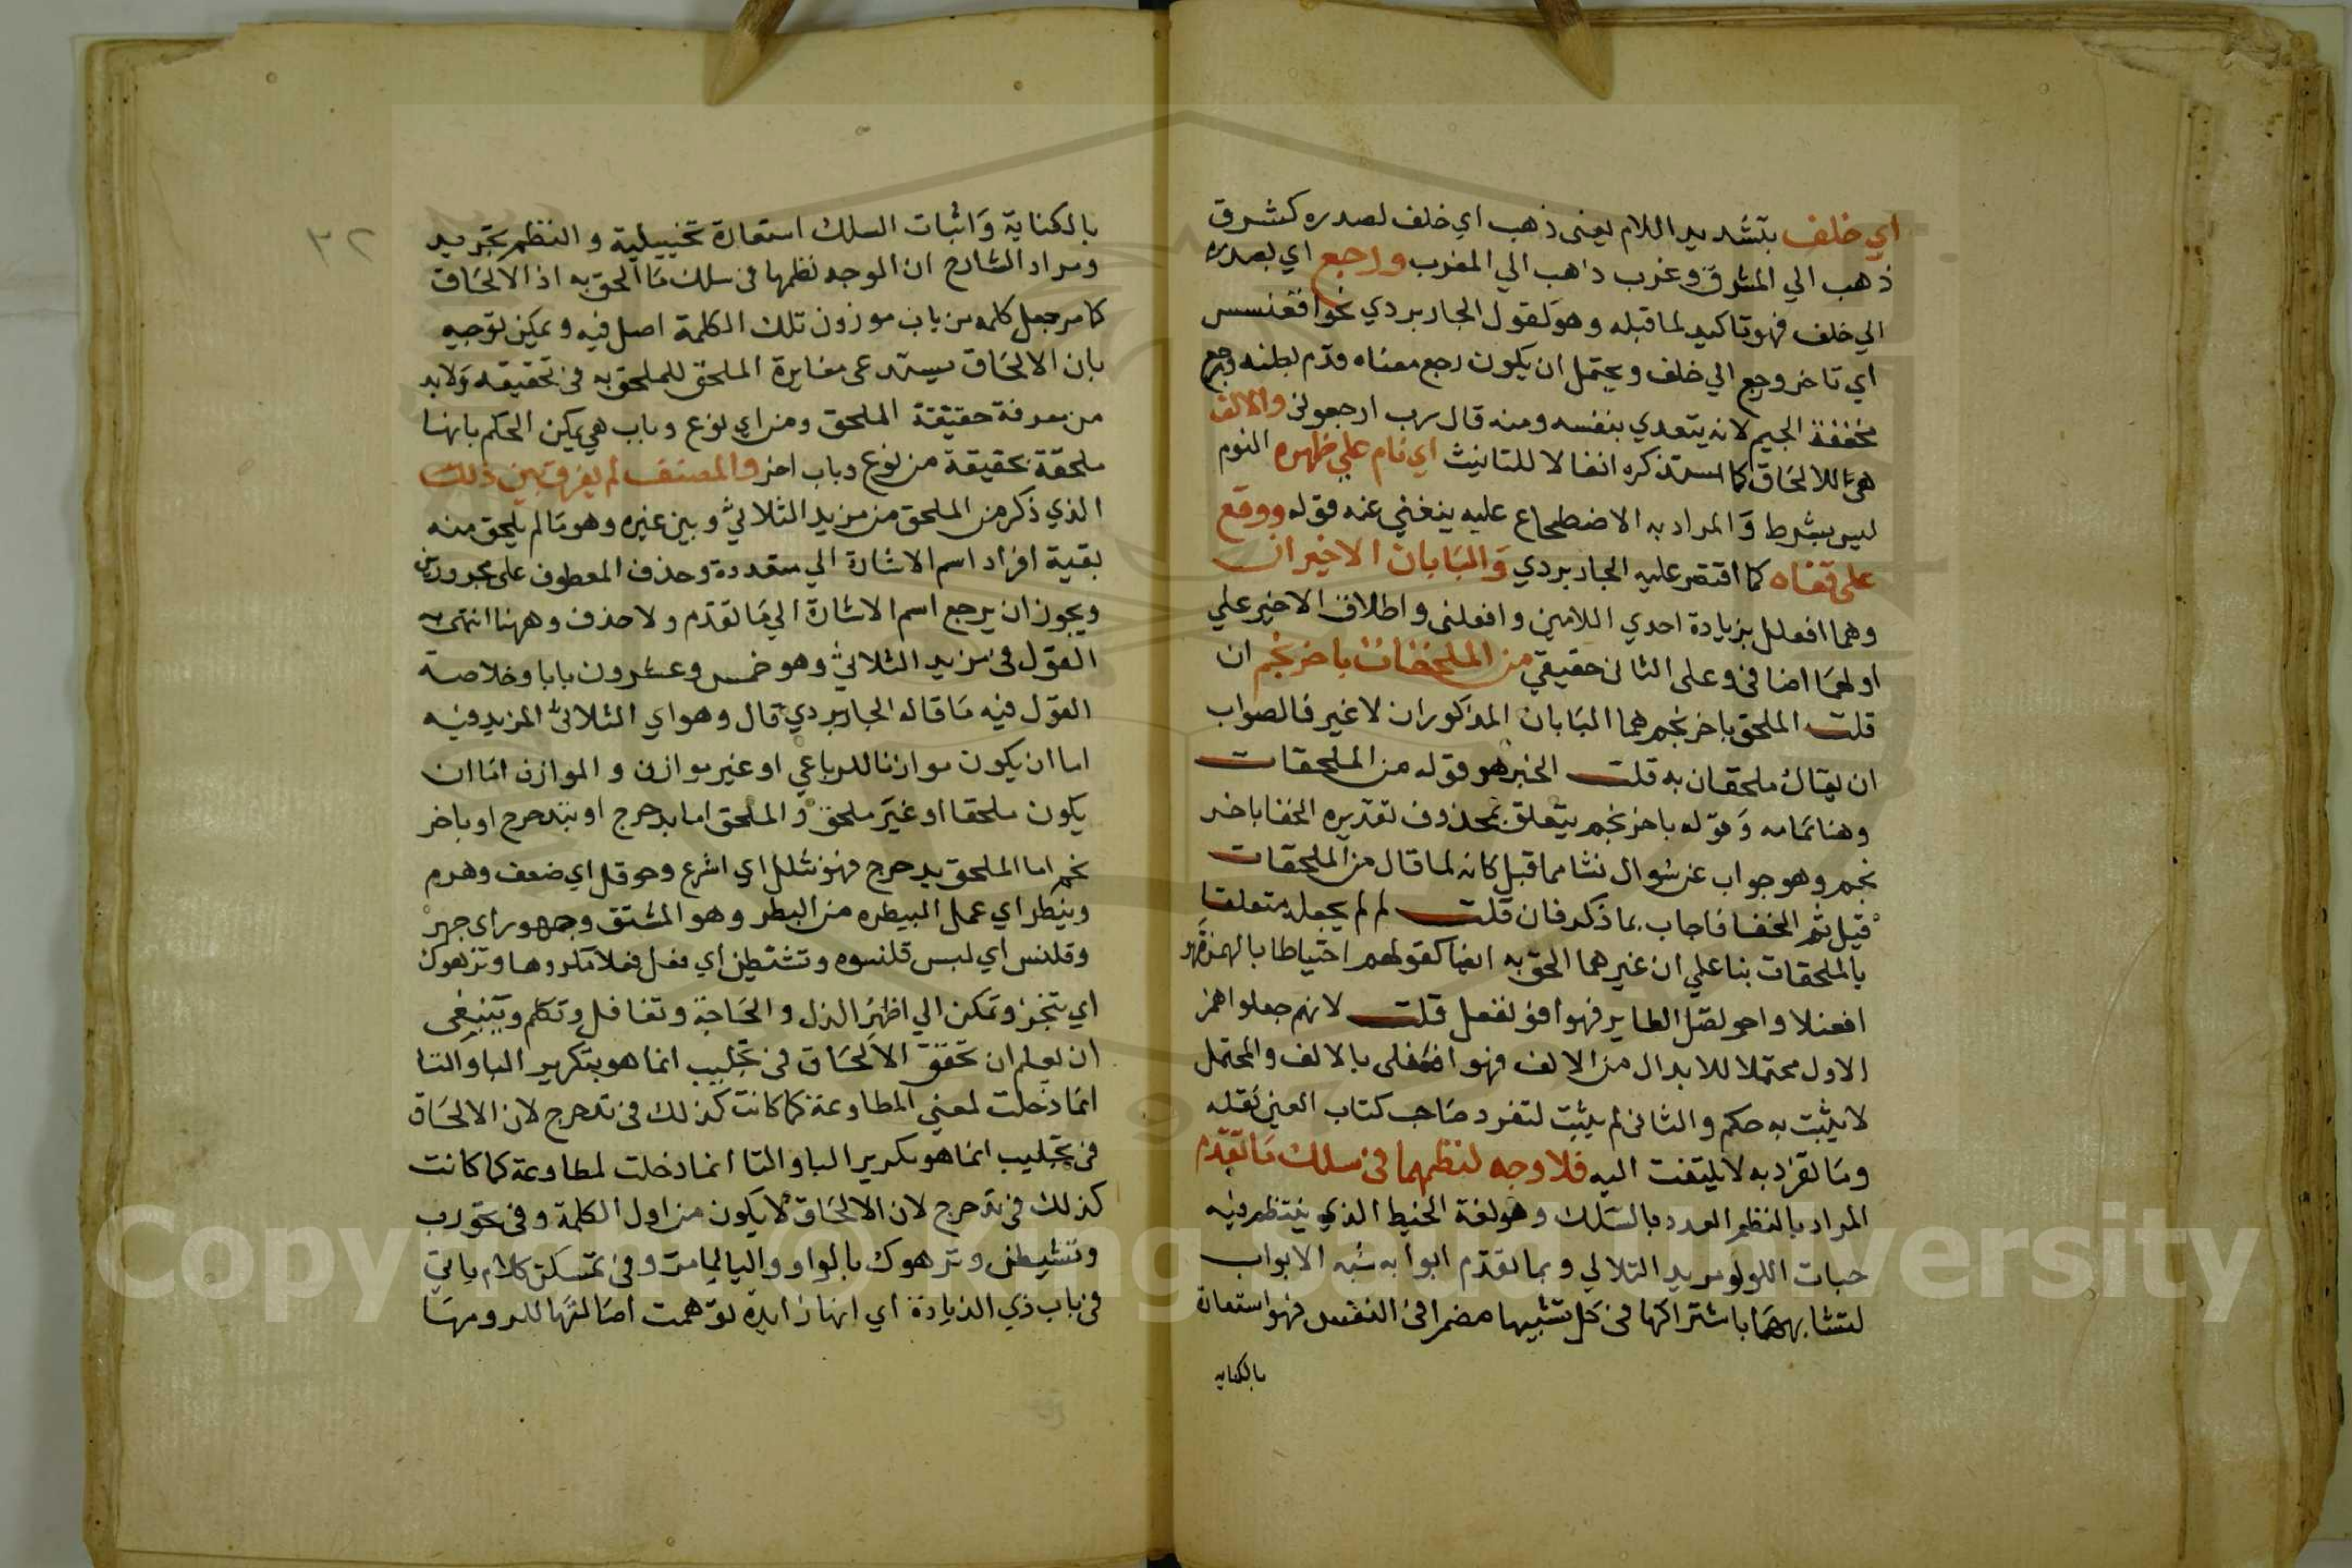 اي خلف بتشديد اللام يعنى ذهب اي خلف لصدره كشرق
ذهب الي المشرق وغرب ذاهب الي المغرب ورجع اي بصدره
الي خلف فهو تاكيد لما قبله وهو لقول الجاربردي نحو اقعنسس
اي تاخر وجع الي خلف ويحتمل ان يكون رجع معناه قدم بطنه ورجع
مخففة الجيم لانه يتعدي بنفسه ومنه قال رب ارجعونى والالف
هى للالحاق كما ستذكره انفا لا للتانيث اي نام علي ظهره النوم
ليس بشرط وَالمراد به الاضطجاع عليه ينغني عنه قوله ووقع
على قفاه كما اقتصر عليه الجاربردي وَالبَابان الاخيران
وهما افعلل بزيادة احدي اللامين وافعلنى واطلاق الاخير علي
اولهمَا اضافى وعلى الثانى حقيقي من الملحقات باخرنجم ان
قلت الملحق باخرنجم هما البَابان المذكوران لا غير فالصواب
ان يقال ملحقان به قلت الخبر هو قوله من الملحقات
وهنا تمامه وَقوله باخرنجم يتعلق بمحذوف تقديره الحقا باخر
نجم وهو جواب عن سُوال نشا مما قبل كانه لما قال من الملحقات
قيل بم الحقا فاجاب بما ذكر فان قلت لم لم يجعله متعلقا
بالملحقات بنا علي ان غيرهما الحق به ايضا كقولهم احتياطا بالهمز
افعنلا واحونصل الطاير فهو افونعل قلت لانهم جعلوا همز
الاول محتملا للابدال من الالف فهو افعنلى بالالف والمحتمل
لا يثبت به حكم والثانى لم يثبت لتفرد صَاحب كتاب العين بنقله
ومَا تفرد به لا يلتفت اليه فلا وجه لنظمهما فى سلك مَا تقدم
المراد بالنظم العدد بالسَلك وهو لغة الخيط الذي ينتظم فيه
حبات اللولو مزيد الثلاثي وبما تقدم ابوابه شبه الابواب
لتشابههَما باشتراكها فى كل تشبيها مضمرا فى النفس فهو استعارة
بالكنايه
٣٢
بالكناية وَاثبات السلك استعارة تخييلية والنظم تجريد
ومراد الشارح ان الوجه نظمها فى سلك مَا الحق به اذ الالحَاق
كما مر جعل كلمه من باب موزون تلك الكلمة اصل فيه ويمكن توجيه
بان الالحَاق يستدعى مغايرة الملحق للملحق به فى تحقيقه وَلابد
من معرفة حقيقة الملحق ومن اي نوع وباب هي يمكن الحكم بانها
ملحقة بحقيقة من نوع وباب اخر والمصنف لم يفرق بين ذلك
الذي ذكر من الملحق من مزيد الثلاثي وبين غيره وهو مَا لم يلحق منه
بقية افراد اسم الاشارة الي متعددة وحذف المعطوف على مجروربين
ويجوز ان يرجع اسم الاشارة الي مَا تقدم ولا حذف وههنا انتهى
القول فى مزيد الثلاثي وهو خمس وعشرون بابا وخلاصة
القول فيه مَا قاله الجاربردي قال وهو اي الثلاثي المزيد فيه
اما ان يكون موازنا للرباعي او غير موازن والموازن امَا ان
يكون ملحقا او غيَر ملحق وَالملحق اما بدحرج او بتدحرج او باخر
نجم اما الملحق بدحرج فهو شملل اي اسرع وحوقل اي ضعف وهرم
وبيطر اي عمل البيطره من البطر وهو المشتق وجهور اي جهر
وقلنس اي لبس قلنسوه وتشيطن اي فعل فعلا مكروها وترهوك
اي تبختر وتمكن الي اظهر الذل والحَاجة وتغافل وتكلم وينبغى
ان يعلم ان تحقق الالحَاق فى تجلبب انما هو بتكرير البا والتا
انمَا دخلت لمعني المطاوعة كما كانت كذلك فى تدحرج لان الالحَاق
فى تجلبب انما هو بكرير البا والتا انما دخلت لمطاوعة كما كانت
كذلك فى تدحرج لان الالحَاق لا يكون من اول الكلمة وفى تجورب
وتشيطن وترهوك بالواو واليا لما مر وفى تمسكن كلام ياتي
فى باب ذي الزيادة اي انها زايده توهمت اصَالتها للزومهَا